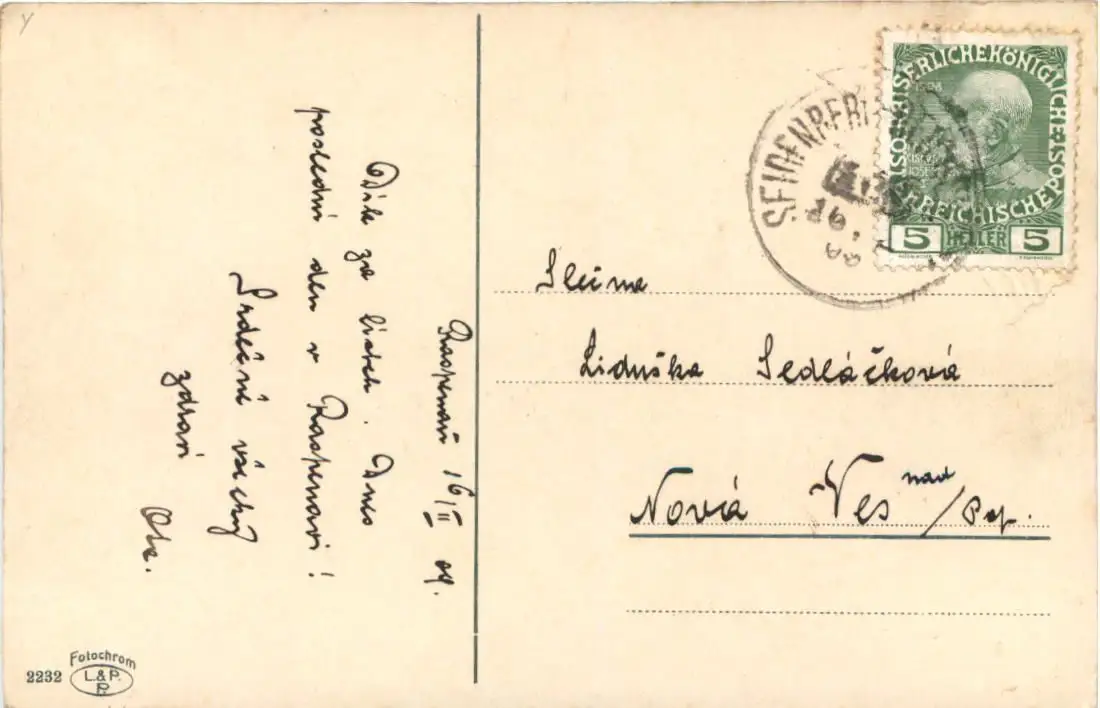 Raspenau 16/II 09.
Dík za lístek. Dnes
poslední den v Raspenavi!
Srdečně všechny
zdraví
Ota.
SEIDENBERG
16.
09
KAISERLICHEKÖNIGLICHE
ÖSTERREICHISCHEPOST
5 HELLER 5
Slečna
Liduška Sedláčková
Nová Ves nad/Pop.
2232
Fotochrom
L.&P.
P.